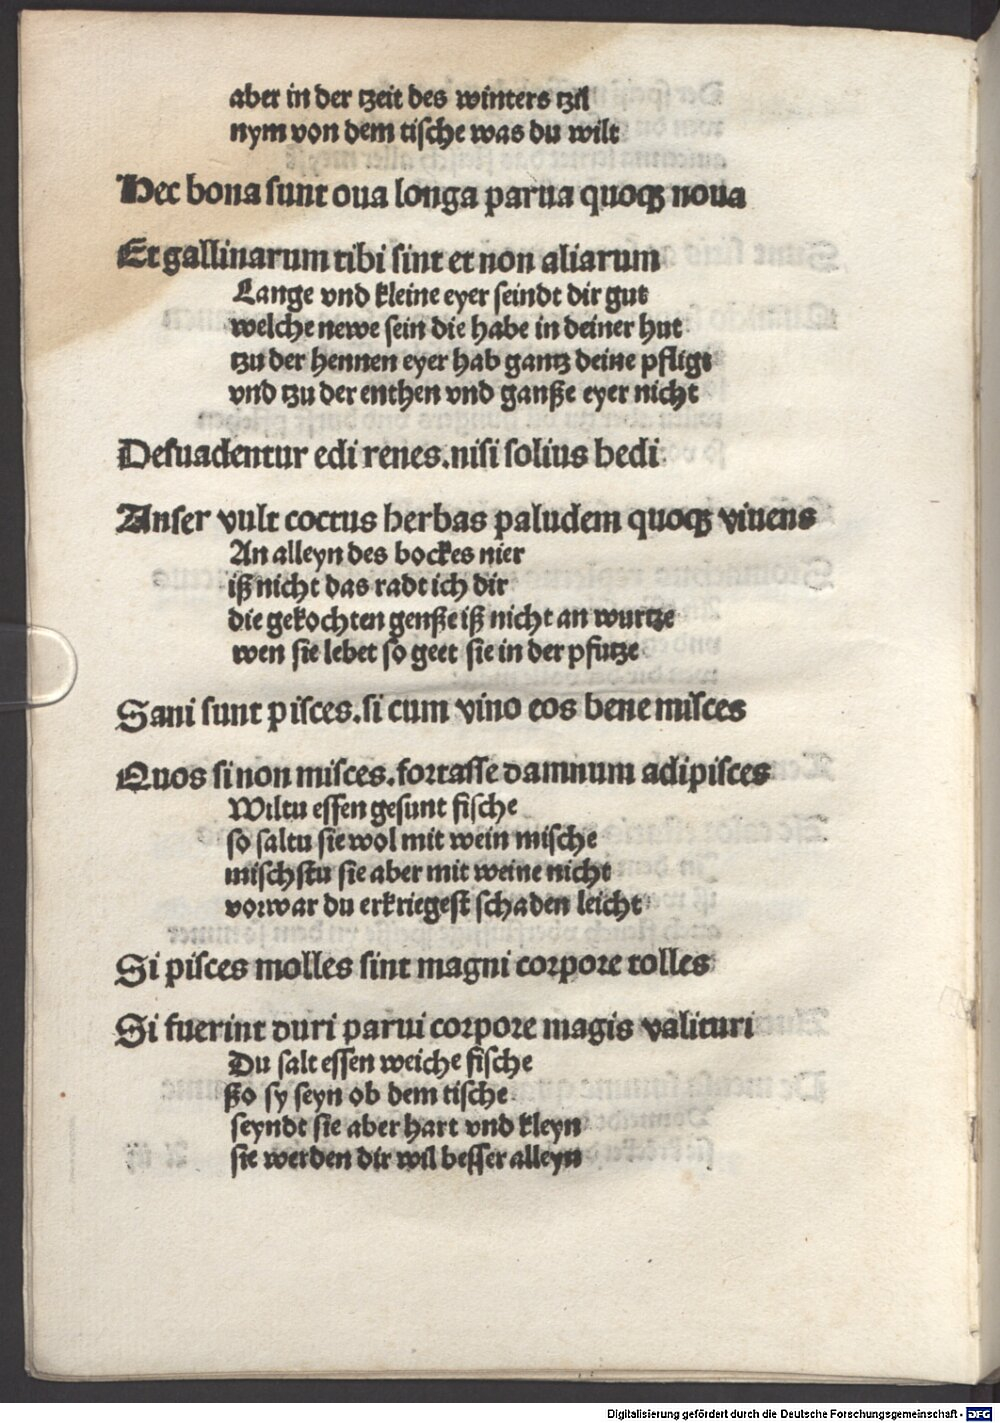 aber in der tzeit des winters tzil
nym von dem tische was du wilt
Hec bona ſunt oua longa parua quoqꝫ noua
Et gallinarum tibi ſint et non aliarum
Lange vnd kleine eyer ſeindt dir gut
welche newe ſein die habe in deiner hut
tzu der hennen eyer hab gantz deine pfligt
vnd tzu der enthen vnd ganße eyer nicht
Deſuadentur edi renes. niſi ſolius hedi
Anſer vult coctus herbas paludem quoqꝫ viuens
An alleyn des bockes nier
iß nicht das radt ich dir
die gekochten genße iß nicht an wurtze
wen ſie lebet ſo geet ſie in der pfutze
Sani ſunt piſces. ſi cum vino eos bene miſces
Quos ſi non miſces. fortaſſe damnum adipiſces
Wiltu eſſen geſunt fiſche
ſo ſaltu ſie wol mit wein miſche
miſchſtu ſie aber mit weine nicht
vorwar du erkriegeſt ſchaden leicht
Si piſces molles ſint magni corpore tolles
Si fuerint duri parui corpore magis valituri
Du ſalt eſſen weiche fiſche
ßo ſy ſeyn ob dem tiſche
ſeyndt ſie aber hart vnd kleyn
ſie werden dir wil beſſer alleyn
Digitalisierung gefördert durch die Deutsche Forschungsgemeinschaft - DFG